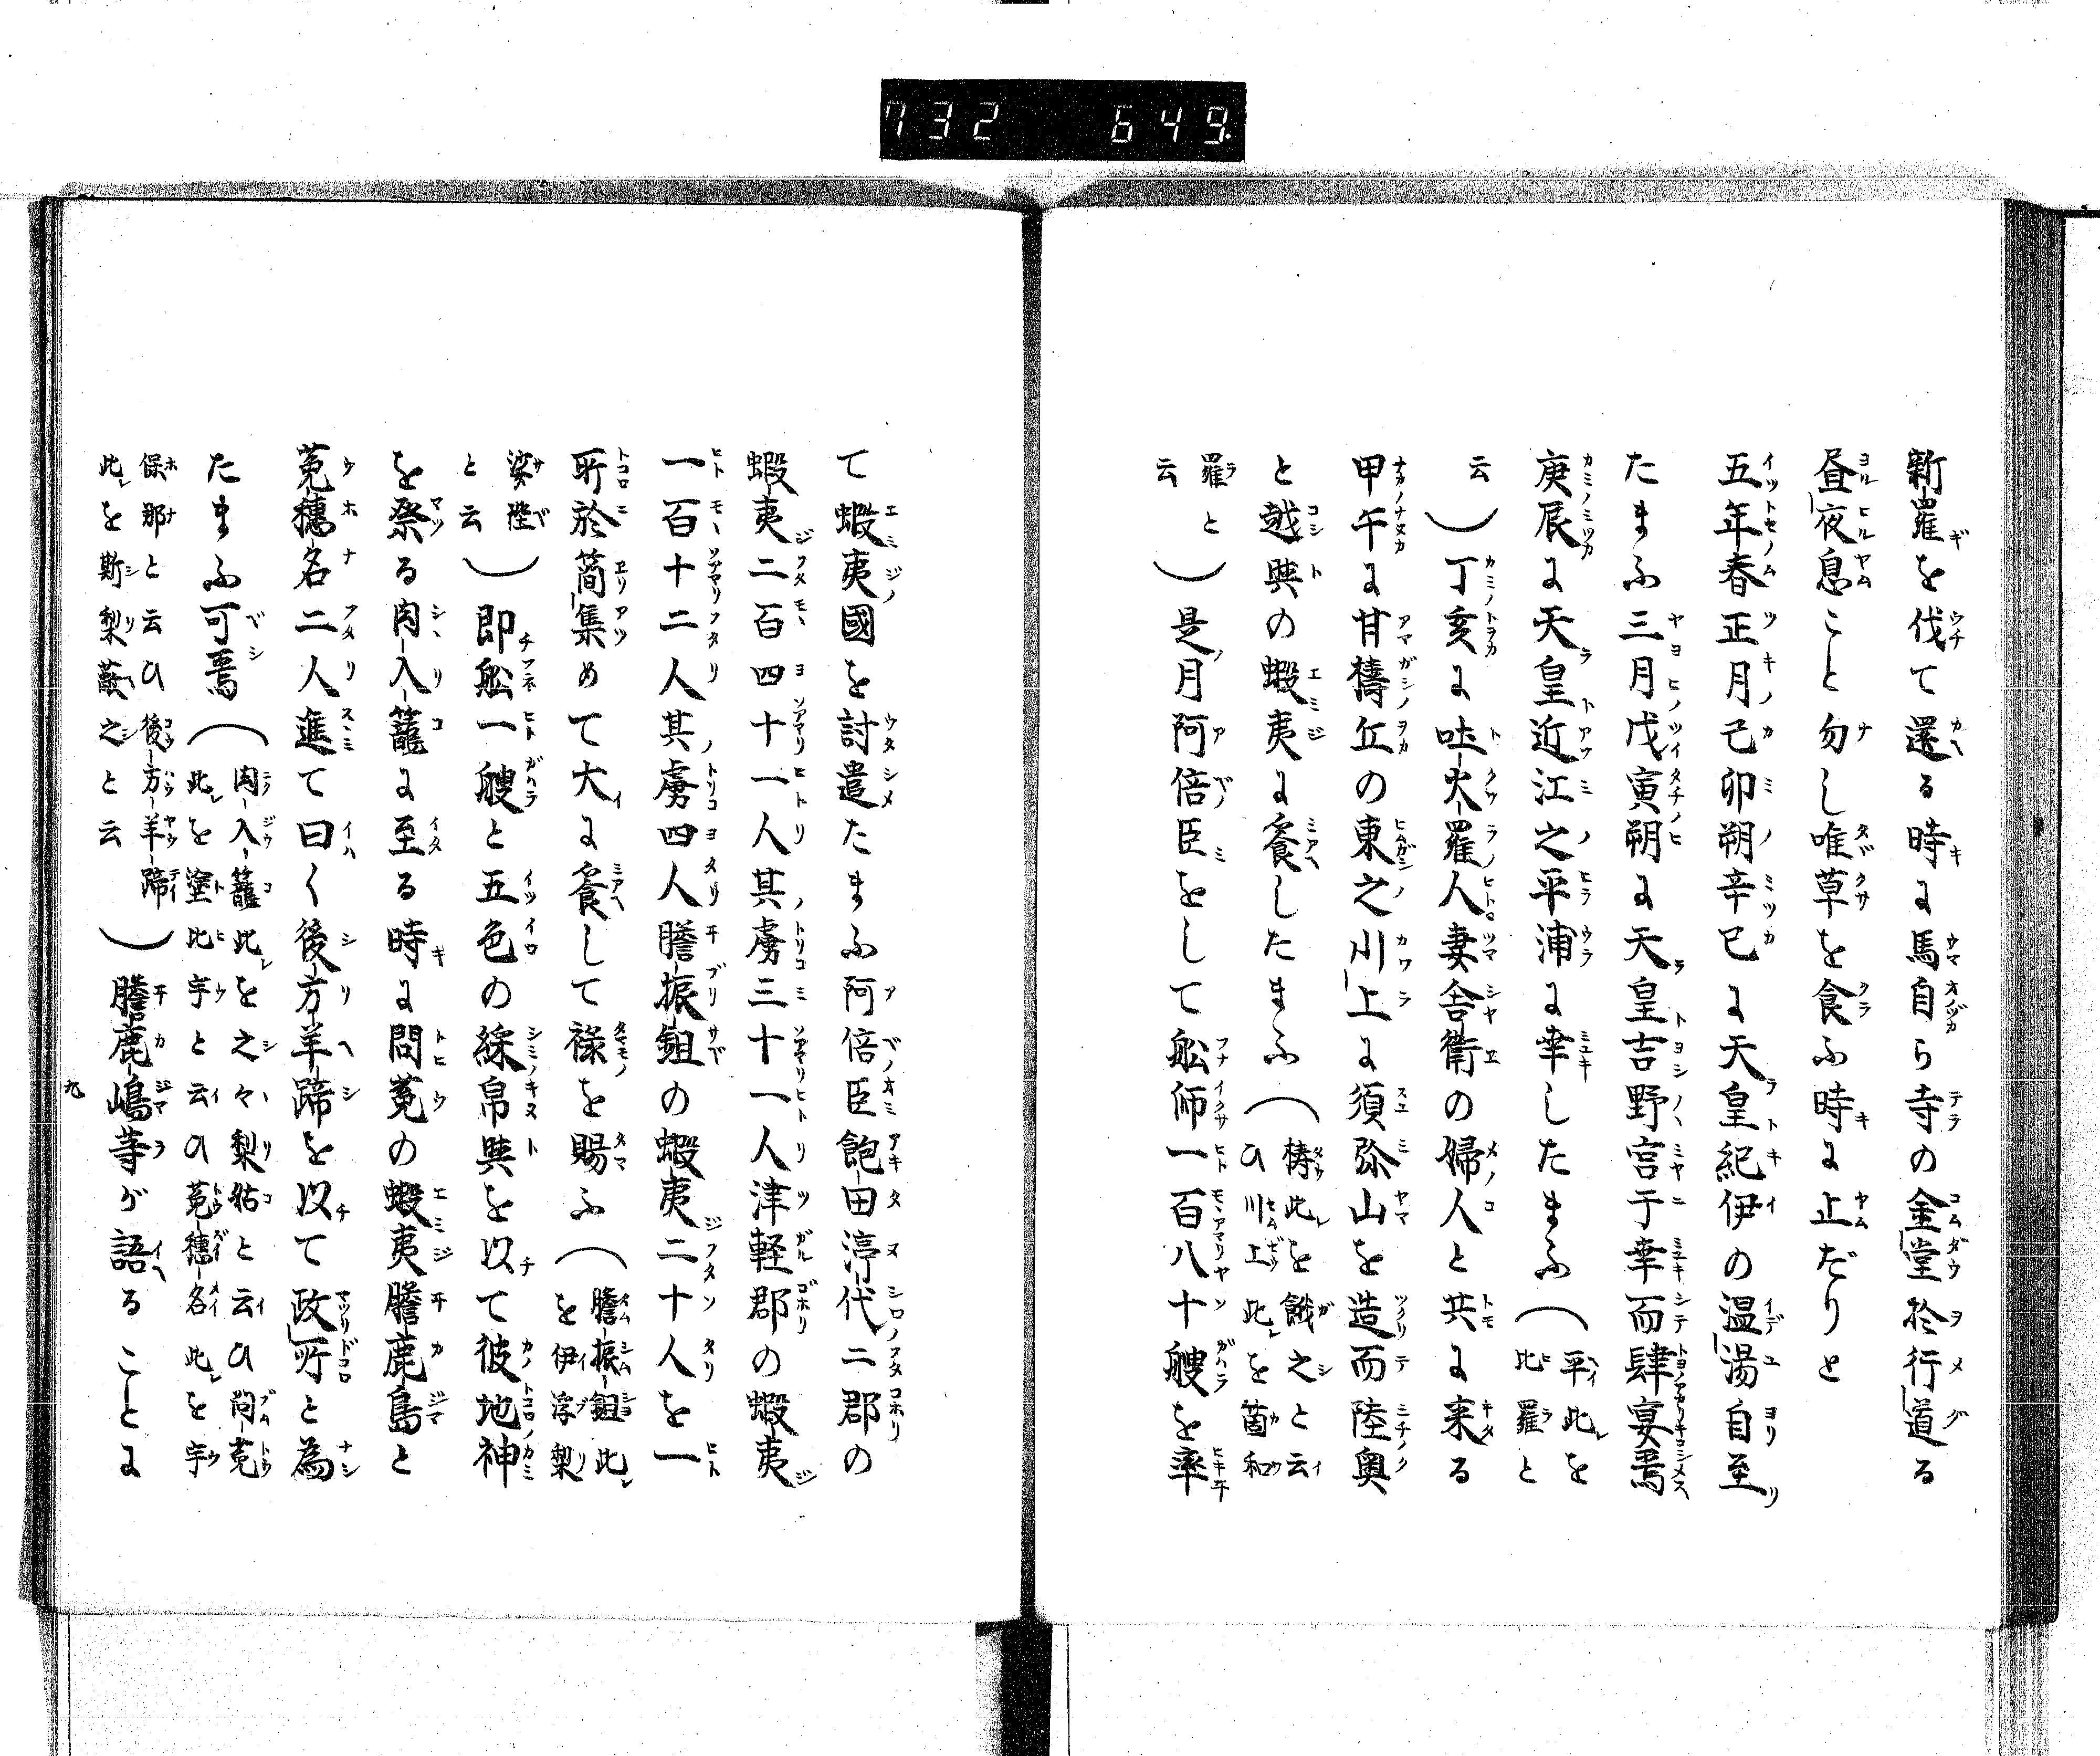 732 649.
新羅を伐て還る時に馬自ら寺の金堂於行道る
昼夜息こと勿し唯草を食ふ時に止だりと
五年春正月己卯朔辛巳に天皇紀伊の温湯自至
たまふ三月戊寅朔に天皇吉野宮于幸而肆宴焉
庚辰に天皇近江之平浦に幸したまふ（平此を比羅と
云）丁亥に吐火羅人妻舎衛の婦人と共に来る
甲午に甘檮丘の東之川上に須弥山を造而陸奥
と越與の蝦夷に飨したまふ（梼此を餓之と云
ひ川上此を箇和
羅と
云）是月阿倍臣をして舩師一百八十艘を率
て蝦夷國を討遣たまふ阿倍臣飽田渟代二郡の
蝦夷二百四十一人其虜三十一人津軽郡の蝦夷
一百十二人其虜四人膽振鉏の蝦夷二十人を一
所於簡集めて大に飨して禄を賜ふ（膽振鉏此
を伊浮梨
娑陛
と云）即舩一艘と五色の綵帛與を以て彼地神
を祭る肉入籠に至る時に問菟の蝦夷膽鹿島と
菟穗名二人進て曰く後方羊蹄を以て政所と為
たまふ可焉（肉入籠此を之々梨姑と云ひ問菟
此を塗毗宇と云ひ菟穗名此を宇
保那と云ひ後方羊蹄
此を斯梨蔽之と云）膽鹿嶋等が語ることに
九